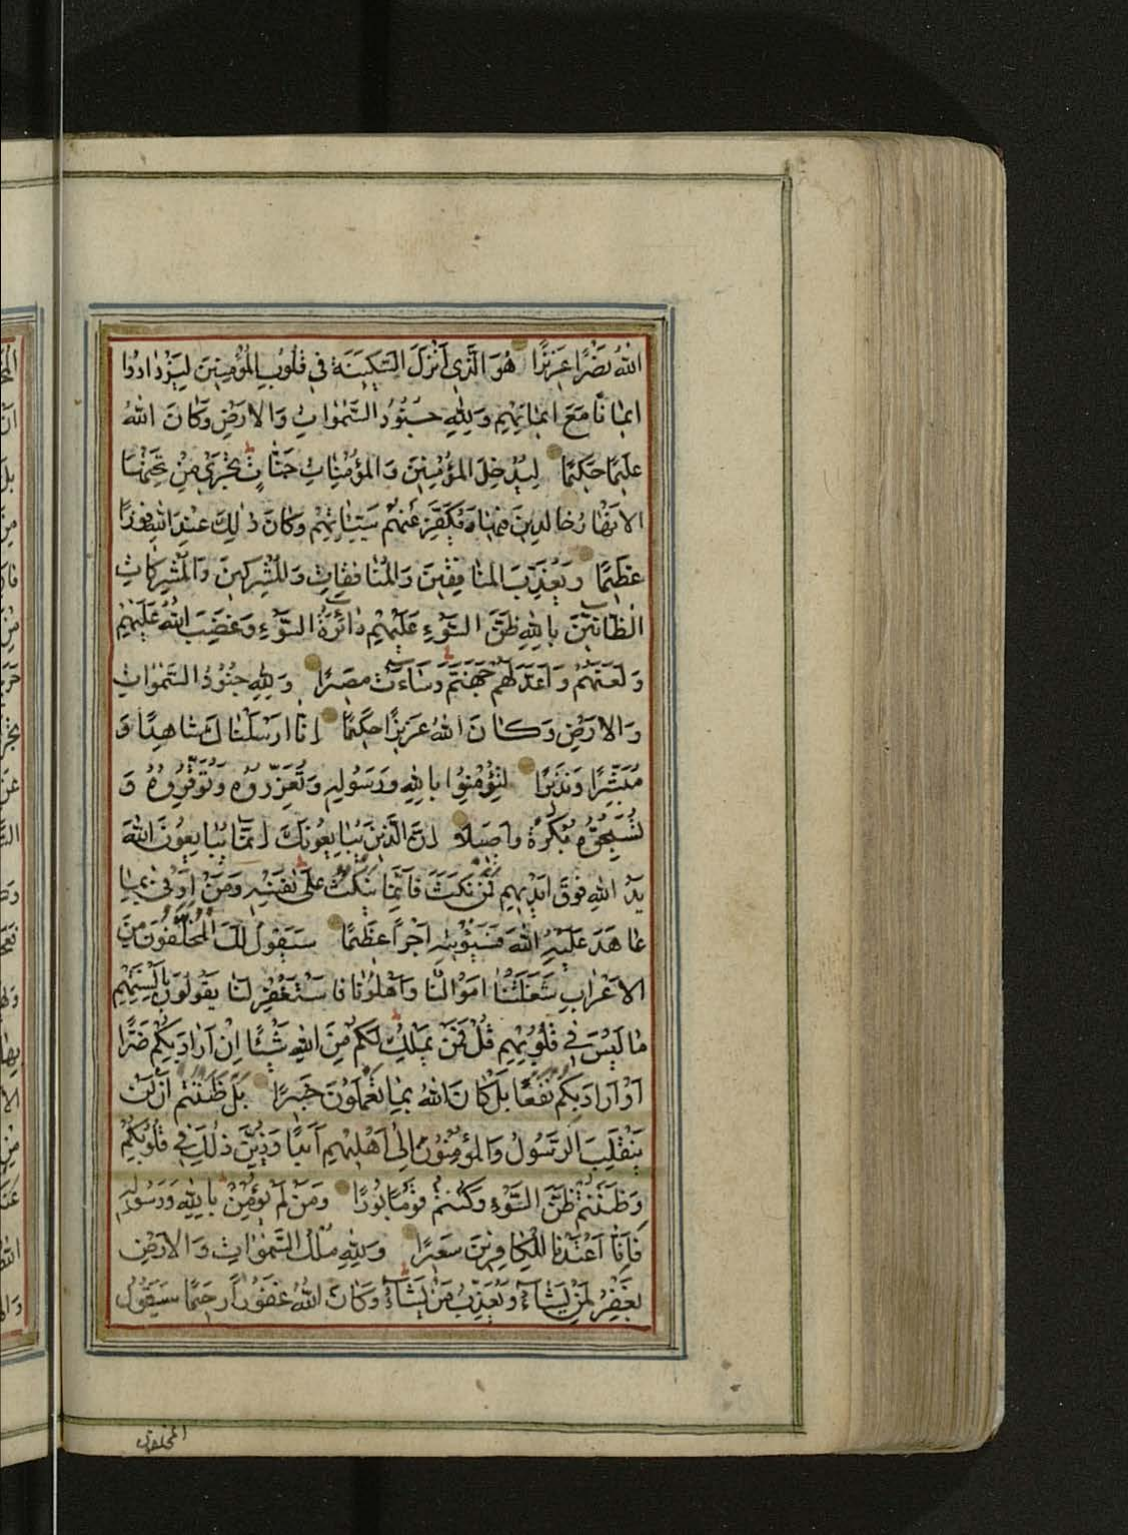 اللهُ نَصْرًا عَزِيزًا هُوَ الَّذِي أَنْزَلَ السَّكِينَةَ فِي قُلُوبِ الْمُؤْمِنِينَ لِيَزْدَادُوا
اِيمَانًا مَعَ اِيمَانِهِمْ وَلِلّٰهِ جُنُودُ السَّمٰوَاتِ وَالْاَرْضِ وَكَانَ اللهُ
عَلِيمًا حَكِيمًا لِيُدْخِلَ الْمُؤْمِنِينَ وَالْمُؤْمِنَاتِ جَنَّاتٍ تَجْرِي مِنْ تَحْتِهَا
الْاَنْهَارُ خَالِدِينَ فِيهَا وَيُكَفِّرَ عَنْهُمْ سَيِّئَاتِهِمْ وَكَانَ ذٰلِكَ عِنْدَ اللهِ فَوْزًا
عَظِيمًا وَيُعَذِّبَ الْمُنَافِقِينَ وَالْمُنَافِقَاتِ وَالْمُشْرِكِينَ وَالْمُشْرِكَاتِ
الظَّانِّينَ بِاللهِ ظَنَّ السَّوْءِ عَلَيْهِمْ دَائِرَةُ السَّوْءِ وَغَضِبَ اللهُ عَلَيْهِمْ
وَلَعَنَهُمْ وَاَعَدَّ لَهُمْ جَهَنَّمَ وَسَاءَتْ مَصِيرًا وَلِلّٰهِ جُنُودُ السَّمٰوَاتِ
وَالْاَرْضِ وَكَانَ اللهُ عَزِيزًا حَكِيمًا اِنَّا اَرْسَلْنَاكَ شَاهِدًا وَ
مُبَشِّرًا وَنَذِيرًا لِتُؤْمِنُوا بِاللهِ وَرَسُولِهِ وَتُعَزِّرُوهُ وَتُوَقِّرُوهُ وَ
تُسَبِّحُوهُ بُكْرَةً وَاَصِيلًا اِنَّ الَّذِينَ يُبَايِعُونَكَ اِنَّمَا يُبَايِعُونَ اللهَ
يَدُ اللهِ فَوْقَ اَيْدِيهِمْ فَمَنْ نَكَثَ فَاِنَّمَا يَنْكُثُ عَلٰى نَفْسِهِ وَمَنْ اَوْفٰى بِمَا
عَاهَدَ عَلَيْهُ اللهَ فَسَيُؤْتِيهِ اَجْرًا عَظِيمًا سَيَقُولُ لَكَ الْمُخَلَّفُونَ مِنَ
الْاَعْرَابِ شَغَلَتْنَا اَمْوَالُنَا وَاَهْلُونَا فَاسْتَغْفِرْ لَنَا يَقُولُونَ بِاَلْسِنَتِهِمْ
مَا لَيْسَ فِي قُلُوبِهِمْ قُلْ فَمَنْ يَمْلِكُ لَكُمْ مِنَ اللهِ شَيْئًا اِنْ اَرَادَ بِكُمْ ضَرًّا
اَوْ اَرَادَ بِكُمْ نَفْعًا بَلْ كَانَ اللهُ بِمَا تَعْمَلُونَ خَبِيرًا بَلْ ظَنَنْتُمْ اَنْ لَنْ
يَنْقَلِبَ الرَّسُولُ وَالْمُؤْمِنُونَ اِلٰى اَهْلِيهِمْ اَبَدًا وَزُيِّنَ ذٰلِكَ فِي قُلُوبِكُمْ
وَظَنَنْتُمْ ظَنَّ السَّوْءِ وَكُنْتُمْ قَوْمًا بُورًا وَمَنْ لَمْ يُؤْمِنْ بِاللهِ وَرَسُولِهِ
فَاِنَّا اَعْتَدْنَا لِلْكَافِرِينَ سَعِيرًا وَلِلّٰهِ مُلْكُ السَّمٰوَاتِ وَالْاَرْضِ
يَغْفِرُ لِمَنْ يَشَاءُ وَيُعَذِّبُ مَنْ يَشَاءُ وَكَانَ اللهُ غَفُورًا رَحِيمًا سَيَقُولُ
المخلفون